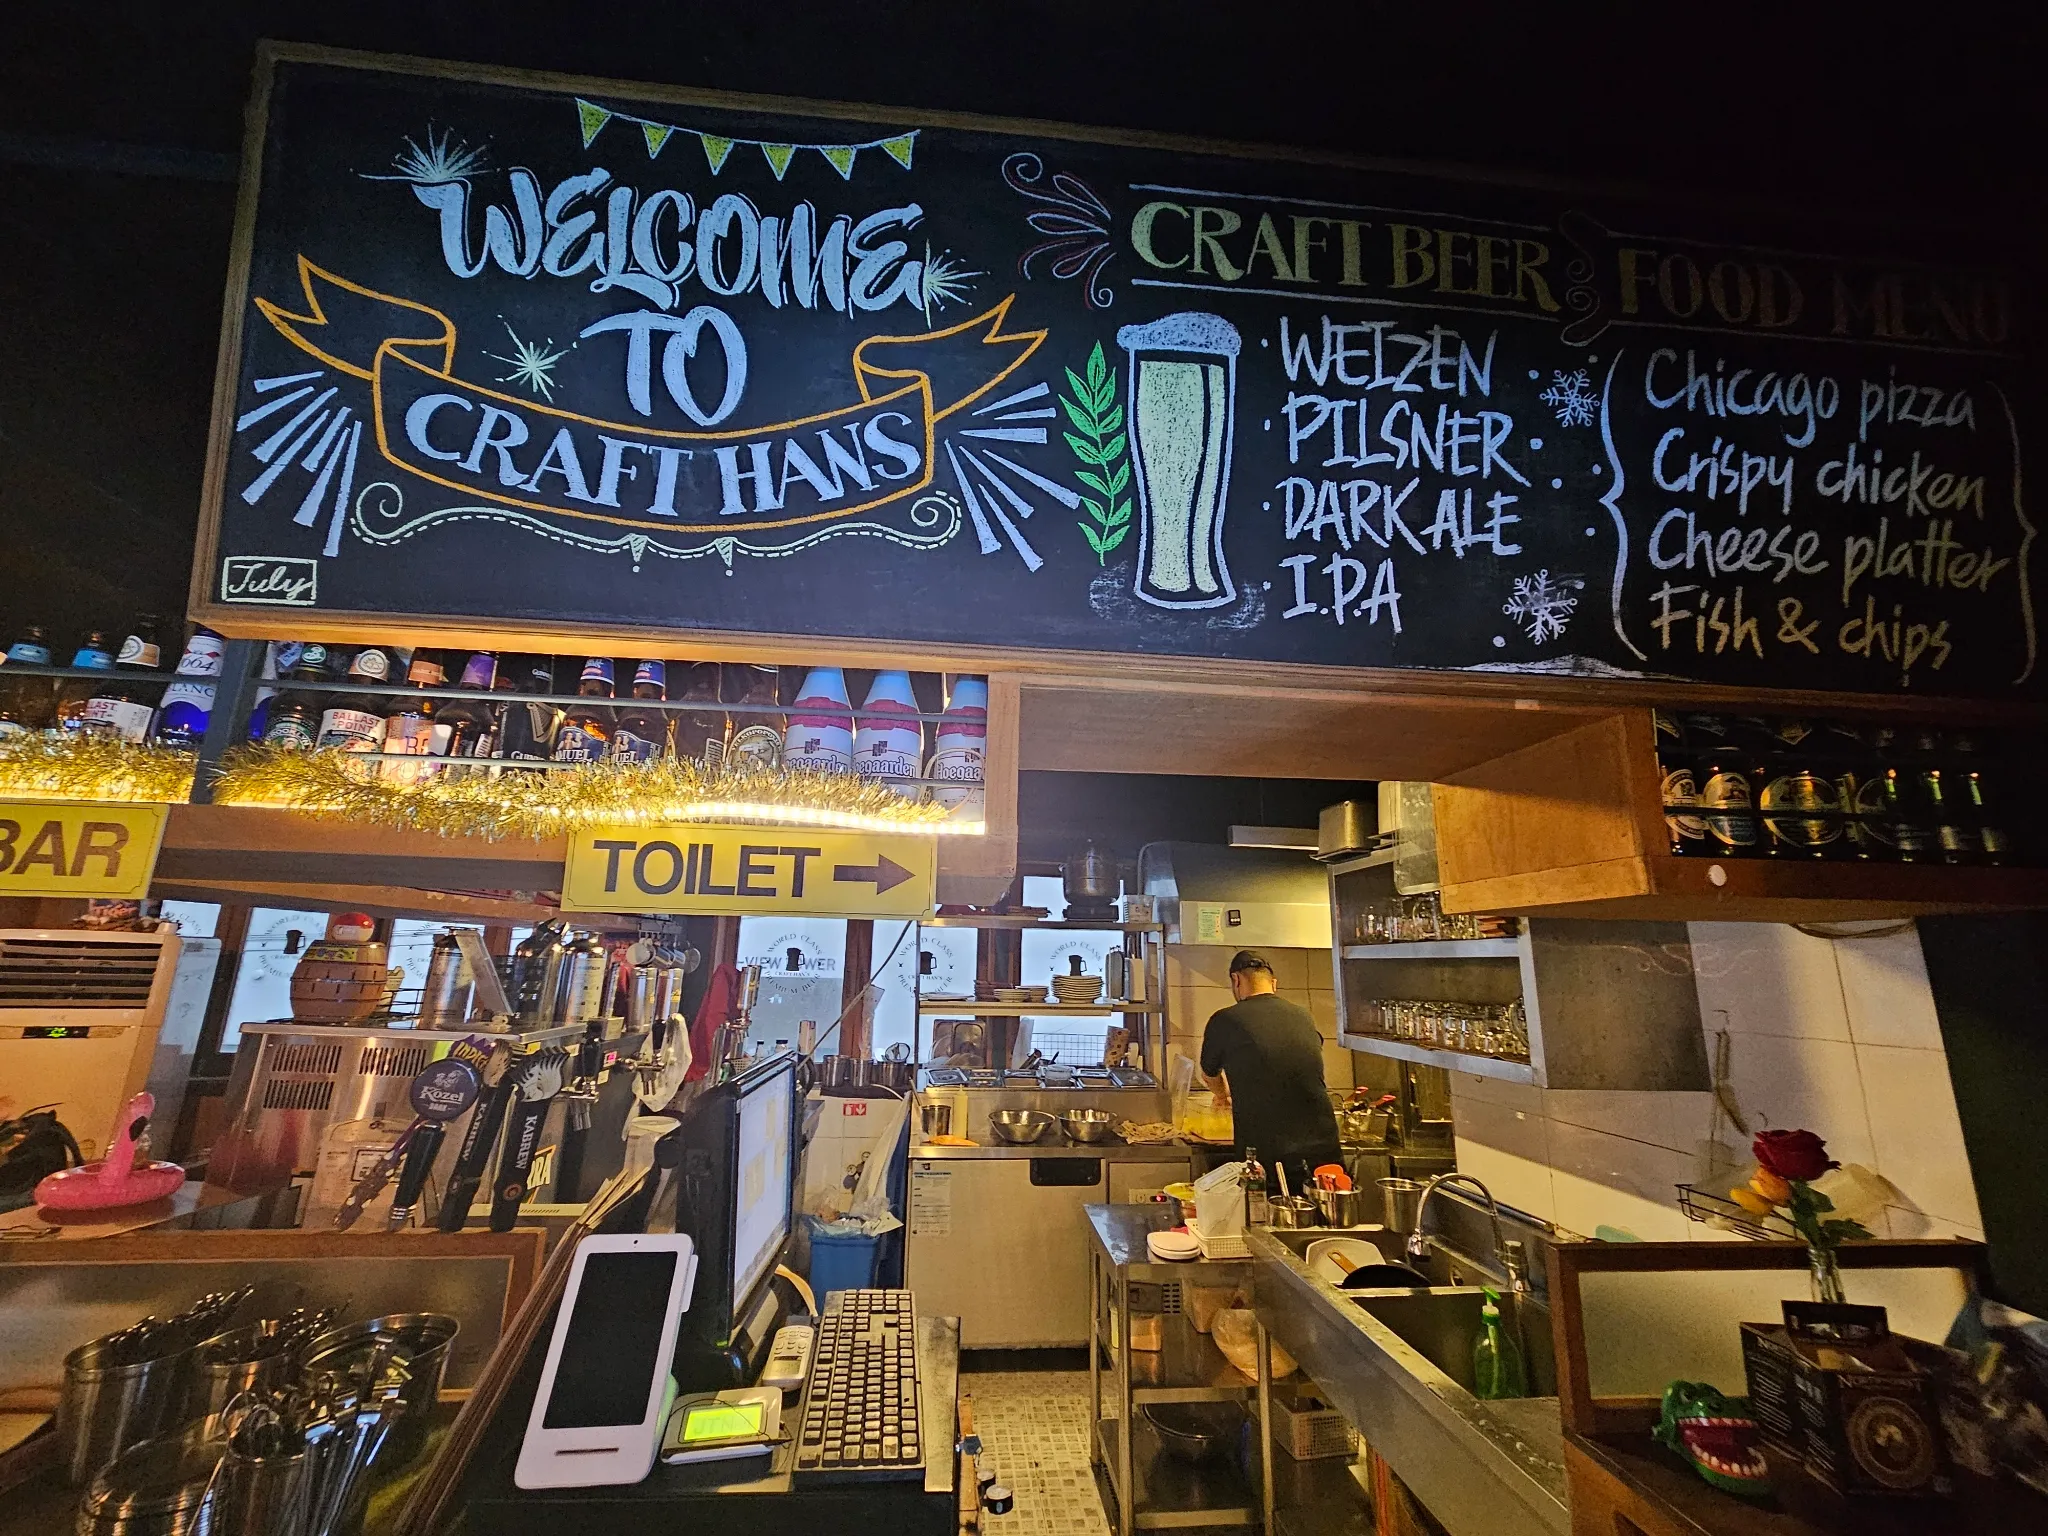 WELCOME
TO
CRAFT HANS
July
CRAFT BEER
WEIZEN
PILSNER
DARK ALE
I.P.A
FOOD MENU
Chicago pizza
Crispy chicken
Cheese platter
Fish & chips
BALLAST
POINT
Hoegaarden
BAR
TOILET →
WORLD CLASS
CRAFT HAN'S
PREMIUM BEER
Kozel
DARK
KABREW